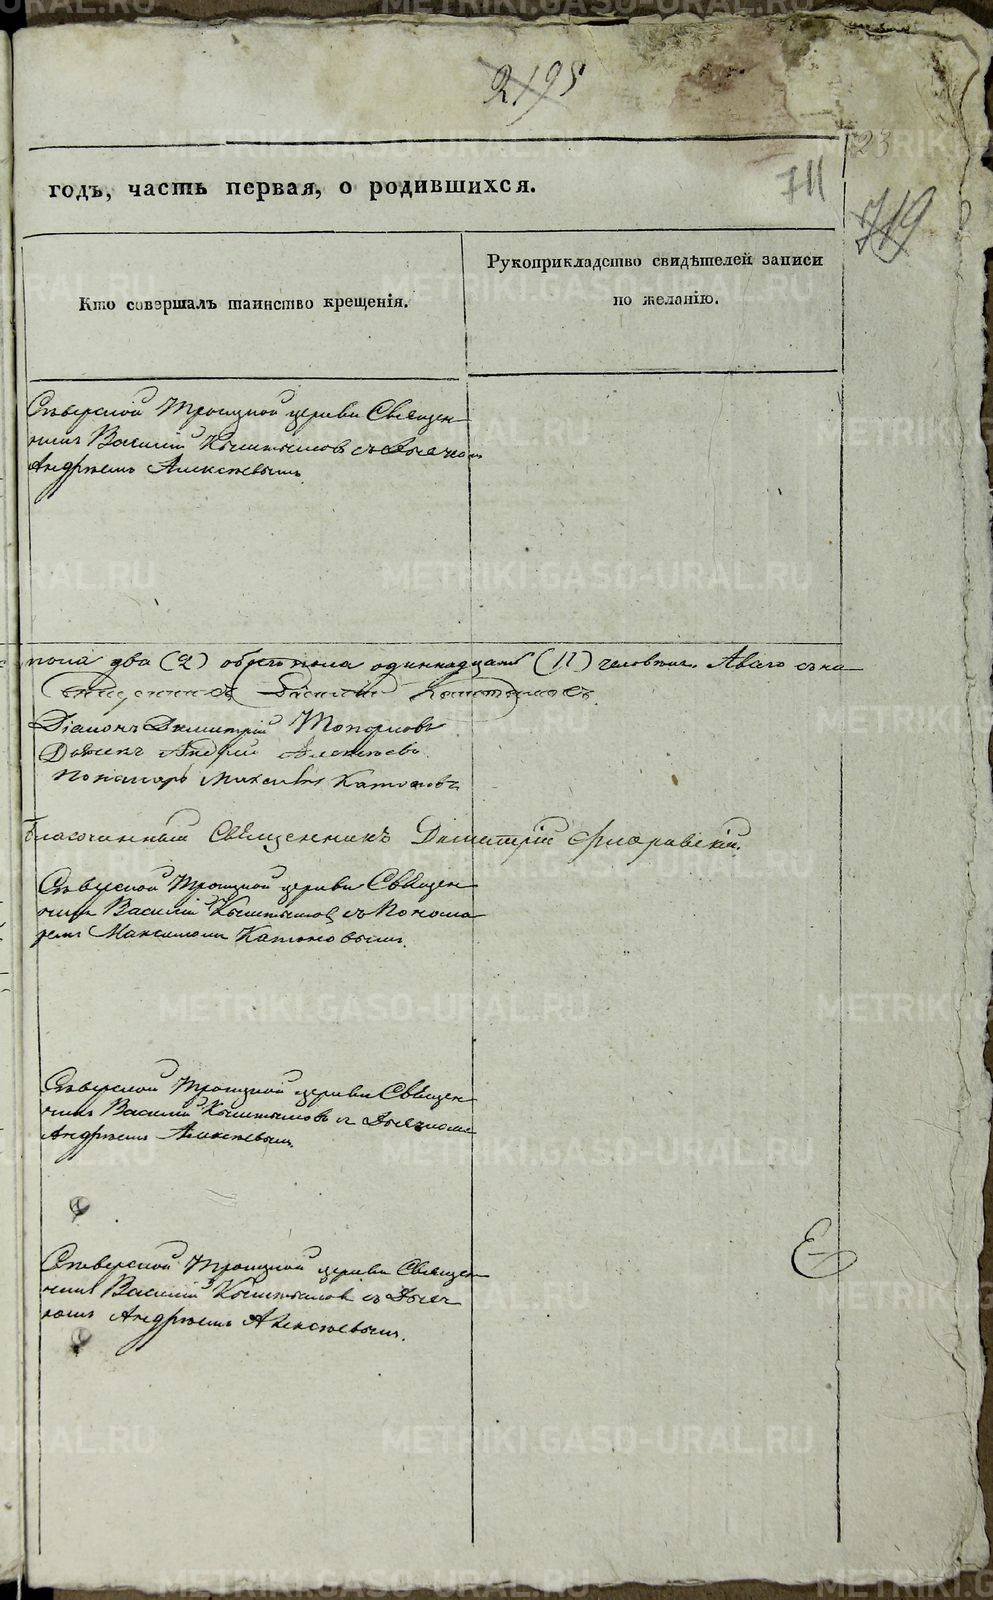 2195
23
711
719
годъ, часть первая, о родившихся.
Кто совершалъ таинство крещенія.
Рукоприкладство свидѣтелей записи
по желанію.
Сѣверской Троицкой церкви Священ
никъ Василій Кыштымовъ съ Дьячкомъ
Андреемъ Алексѣевымъ
пола два (2) обоего пола одиннадцать (11) человѣкъ.
Священникъ Василій Кыштымовъ.
Діаконъ Димитрій Топорковъ
Дьячекъ Андрей Алексѣевъ.
Пономарь Максимъ Катановъ
Благочинный Священникъ Димитрій Флоровскій.
Сѣверской Троицкой церкви Священ
никъ Василій Кыштымовъ съ Понома
ремъ Максимомъ Катановымъ.
Сѣверской Троицкой церкви Священ
никъ Василій Кыштымовъ съ Дьячкомъ
Андреемъ Алексѣевымъ.
Сѣверской Троицкой церкви Священ
никъ Василій Кыштымовъ съ Дьяч
комъ Андреемъ Алексѣевымъ.
METRIKI.GASO-URAL.RU